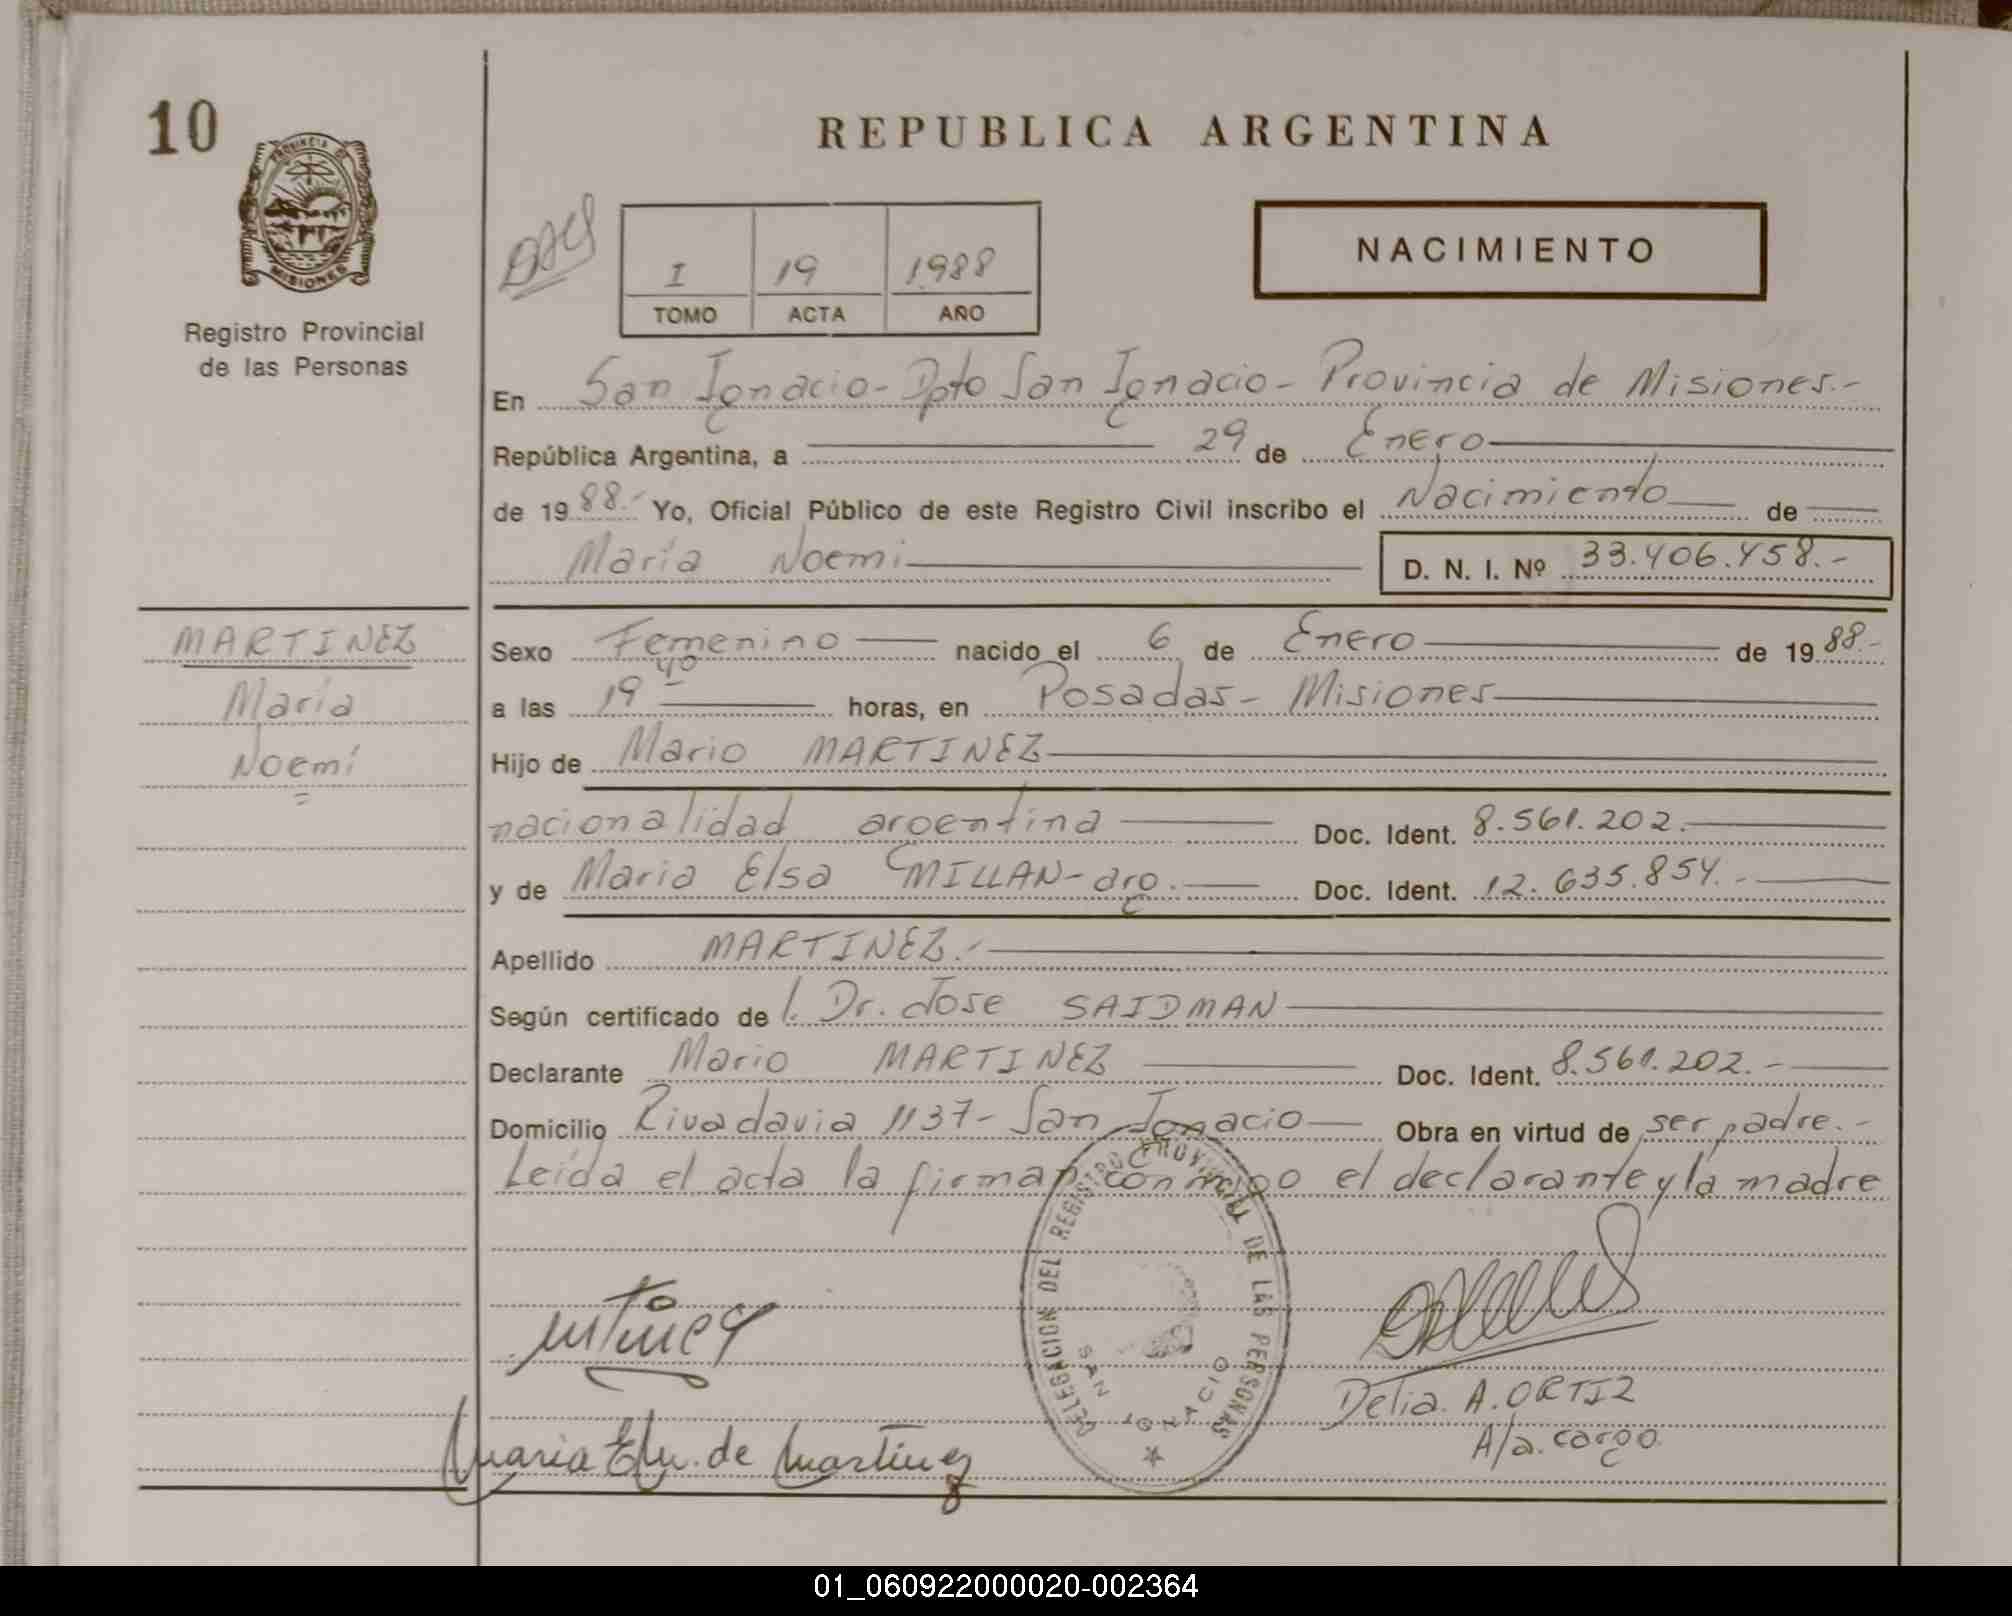 10
PROVINCIA DE
MISIONES
Registro Provincial
de las Personas
REPUBLICA ARGENTINA
I 19 1988
TOMO ACTA AÑO
NACIMIENTO
En San Ignacio - Dpto San Ignacio - Provincia de Misiones.-
República Argentina, a 29 de Enero
de 19 88.- Yo, Oficial Público de este Registro Civil inscribo el Nacimiento de
María Noemi D. N. I. Nº 33.406.458.-
MARTINEZ
María
Noemí
Sexo Femenino nacido el 6 de Enero de 19 88.-
a las 19 40 horas, en Posadas - Misiones
Hijo de Mario MARTINEZ
nacionalidad argentina Doc. Ident. 8.561.202.
y de Maria Elsa MILLAN - arg. Doc. Ident. 12.635.854.-
Apellido MARTINEZ.-
Según certificado de l. Dr. Jose SAIDMAN
Declarante Mario MARTINEZ Doc. Ident. 8.561.202.-
Domicilio Rivadavia 1137 - San Ignacio Obra en virtud de ser padre.-
Leída el acta la firman conmigo el declarante y la madre
DELEGACION DEL REGISTRO PROVINCIAL DE LAS PERSONAS
SAN IGNACIO
Delia. A. ORTIZ
A/a. cargo.
Maria de Martinez
01_060922000020-002364